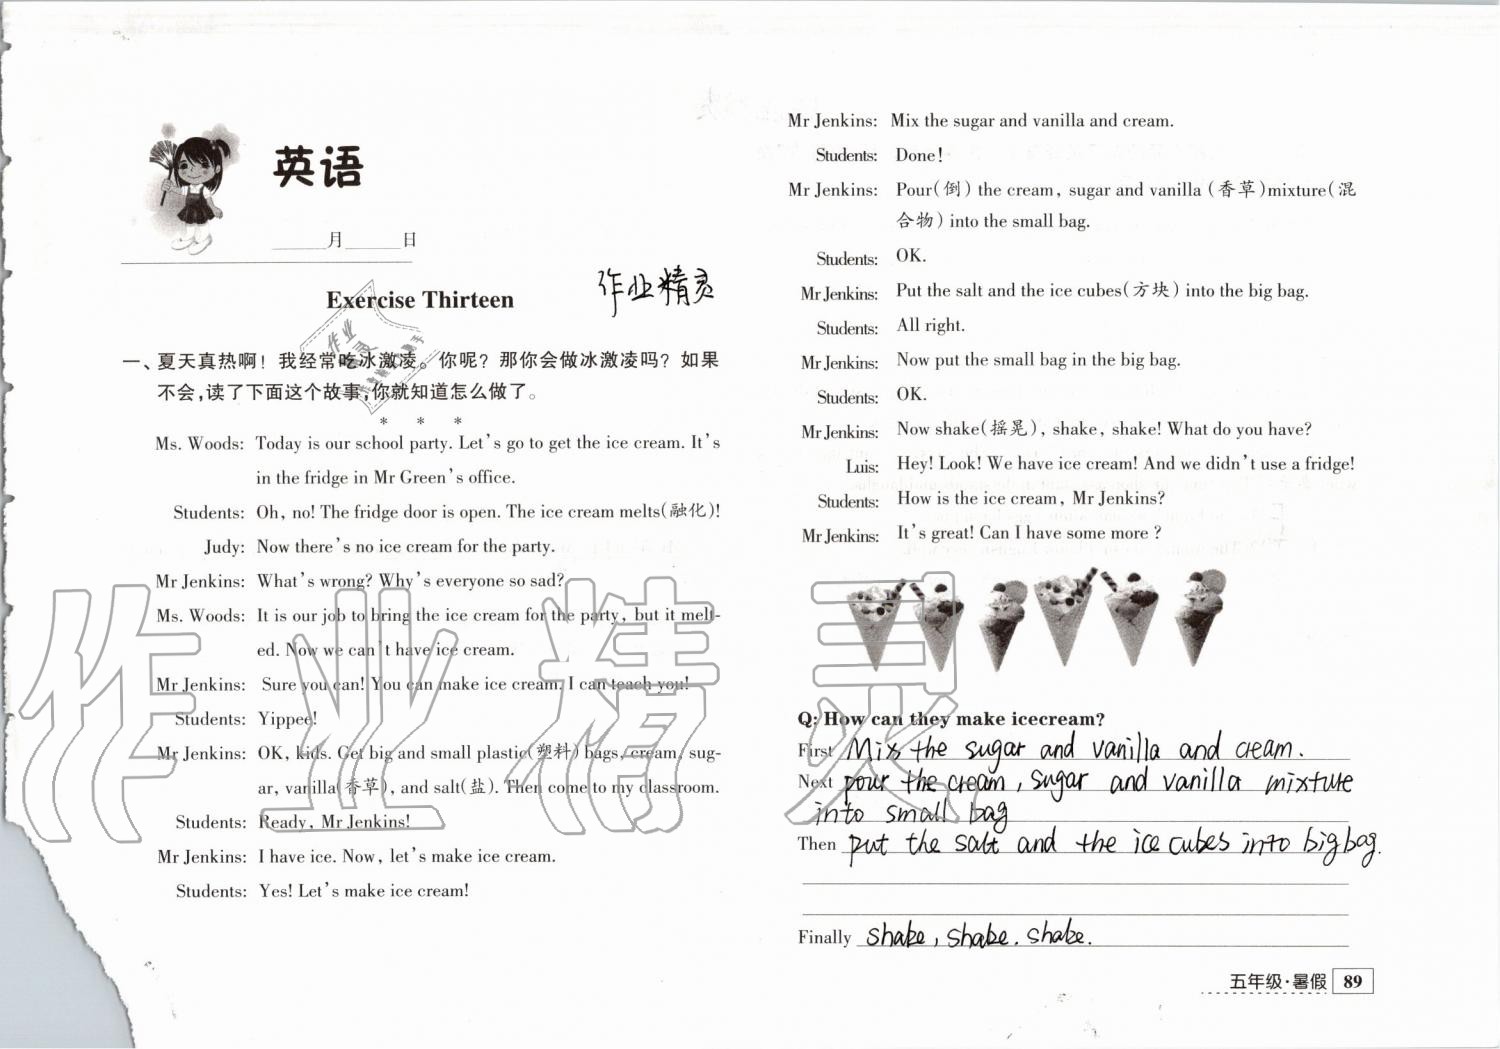 英语
月 日
Exercise Thirteen
作业精灵
一、夏天真热啊！我经常吃冰激凌。你呢？那你会做冰激凌吗？如果
不会,读了下面这个故事,你就知道怎么做了。
* * *
Ms. Woods: Today is our school party. Let's go to get the ice cream. It's
in the fridge in Mr Green's office.
Students: Oh, no! The fridge door is open. The ice cream melts(融化)!
Judy: Now there's no ice cream for the party.
Mr Jenkins: What's wrong? Why's everyone so sad?
Ms. Woods: It is our job to bring the ice cream for the party, but it melt-
ed. Now we can't have ice cream.
Mr Jenkins: Sure you can! You can make ice cream. I can teach you!
Students: Yippee!
Mr Jenkins: OK, kids. Get big and small plastic(塑料) bags, cream, sug-
ar, vanilla(香草), and salt(盐). Then come to my classroom.
Students: Ready, Mr Jenkins!
Mr Jenkins: I have ice. Now, let's make ice cream.
Students: Yes! Let's make ice cream!
Mr Jenkins: Mix the sugar and vanilla and cream.
Students: Done!
Mr Jenkins: Pour(倒) the cream, sugar and vanilla (香草)mixture(混
合物) into the small bag.
Students: OK.
Mr Jenkins: Put the salt and the ice cubes(方块) into the big bag.
Students: All right.
Mr Jenkins: Now put the small bag in the big bag.
Students: OK.
Mr Jenkins: Now shake(摇晃), shake, shake! What do you have?
Luis: Hey! Look! We have ice cream! And we didn't use a fridge!
Students: How is the ice cream, Mr Jenkins?
Mr Jenkins: It's great! Can I have some more ?
Q: How can they make icecream?
First Mix the sugar and vanilla and cream.
Next pour the cream, sugar and vanilla mixture
into small bag
Then put the salt and the ice cubes into big bag.
Finally shake, shake. shake.
五年级·暑假 89
作业精灵